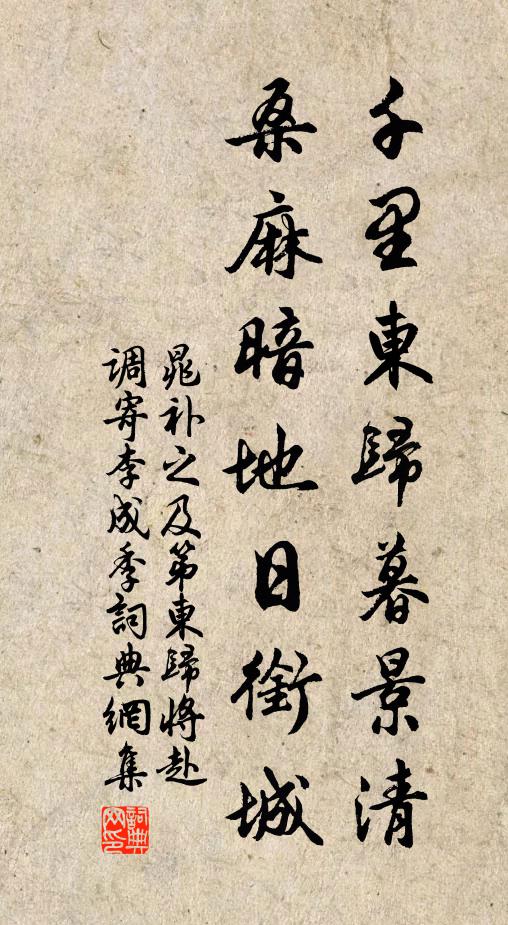 千里東歸暮景清
桑麻暗地日銜城
晁补之及第東歸將赴
調寄李成季詞典網集
詞典网印